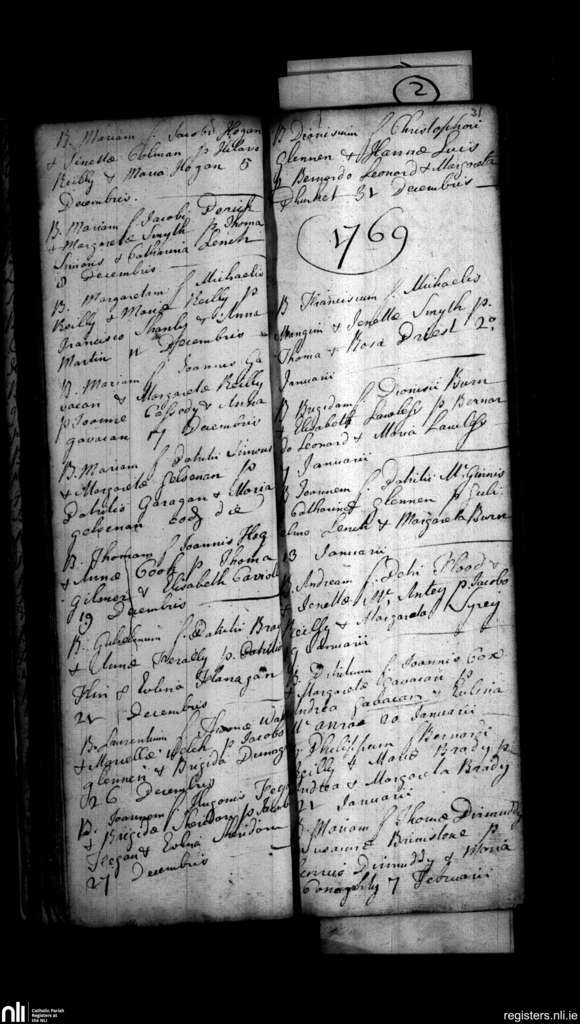 B. Mariam f. Jacobi Hogan
& Jenettæ Colman p. Hilari
Reilly & Maria Hogan 5
Decembris.
B. Mariam f. Jacobi
& Margaretæ Smyth p. Thoma
Simons & Catharina Lench
8 Decembris
B. Margaretam f. Michaelis
Reilly & Mariæ Reilly p
Francisco Shanly & Anna
Martin 11 Decembris
B. Mariam f. Joannis Ga
vacan & Margaretæ Reilly
p Joanne Cassody & Anna
Gavacan 17 Decembris
B. Mariam f. Patritii Simons
& Margaretæ Gelsenan p
Patritio Garagan & Maria
Gelsenan eodẽ die
B. Thomam f. Joannis Hog
& Annæ Coot p Thoma
Gilmer & Elisabeth Carrole
19 Decembris
B. Gulielmum f. Patritii Brad
& Annæ Ferally p. Patritio
Flin & Evlina Flanagan
21 Decembris
B. Laurentium f. Thomæ
& Marcellæ Welch p Jacobo
Glennen & Brigida
26 Decembris
B. Joannem f. Hugonis Feg
& Brigidæ Sheridan p Jacob
Feegan & Evlina Sheridan
27 Decembris
31
B Dionisium f. Christophori
Glennen & Hannæ Luis
p Bernardo Leonard & Margareta
Plunket 31 Decembris
1769
B Franciscum f. Michaelis
Mangin & Jenettæ Smyth p.
Thoma & Rosa Driest 2º
Januarii
B Brigidam f. Dionisii Burn
& Elisabeth Lawless p Bernar
do Leonard & Maria Lawless
7 Januarii
B Joannem f. Patritii Mc Ginnis
& Catharinæ Glennen p Guli
elmo Lench & Margareta Burn
13 Januarii
B. Andream f. Petri Flood &
Jenettæ Mc Antey p. Jacobo
Reilly & Margareta Tyrey
Januarii
B Patritium f. Joannis Cox
& Margaretæ Gavacan p
Andrea Gavacan & Evlinia
20 Januarii
B Philippum f Bernardi
Reilly & Mariæ Brady p
Andrea & Margareta Brady
21 Januarii
B. Mariam f. Thomæ Dirmuddy
& Susannæ Brimstone p
Dirmuddy & Maria
Conaghty 7 Februarii
2
nli
Catholic Parish
Registers at
the NLI
registers.nli.ie